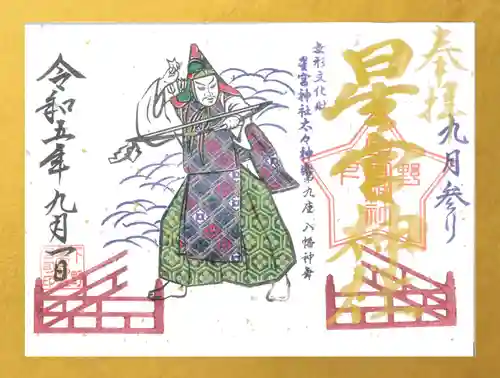 奉拝
九月参り
星宮神社
無形文化財
星宮神社太々神楽 九座 八幡神舞
令和五年九月一日